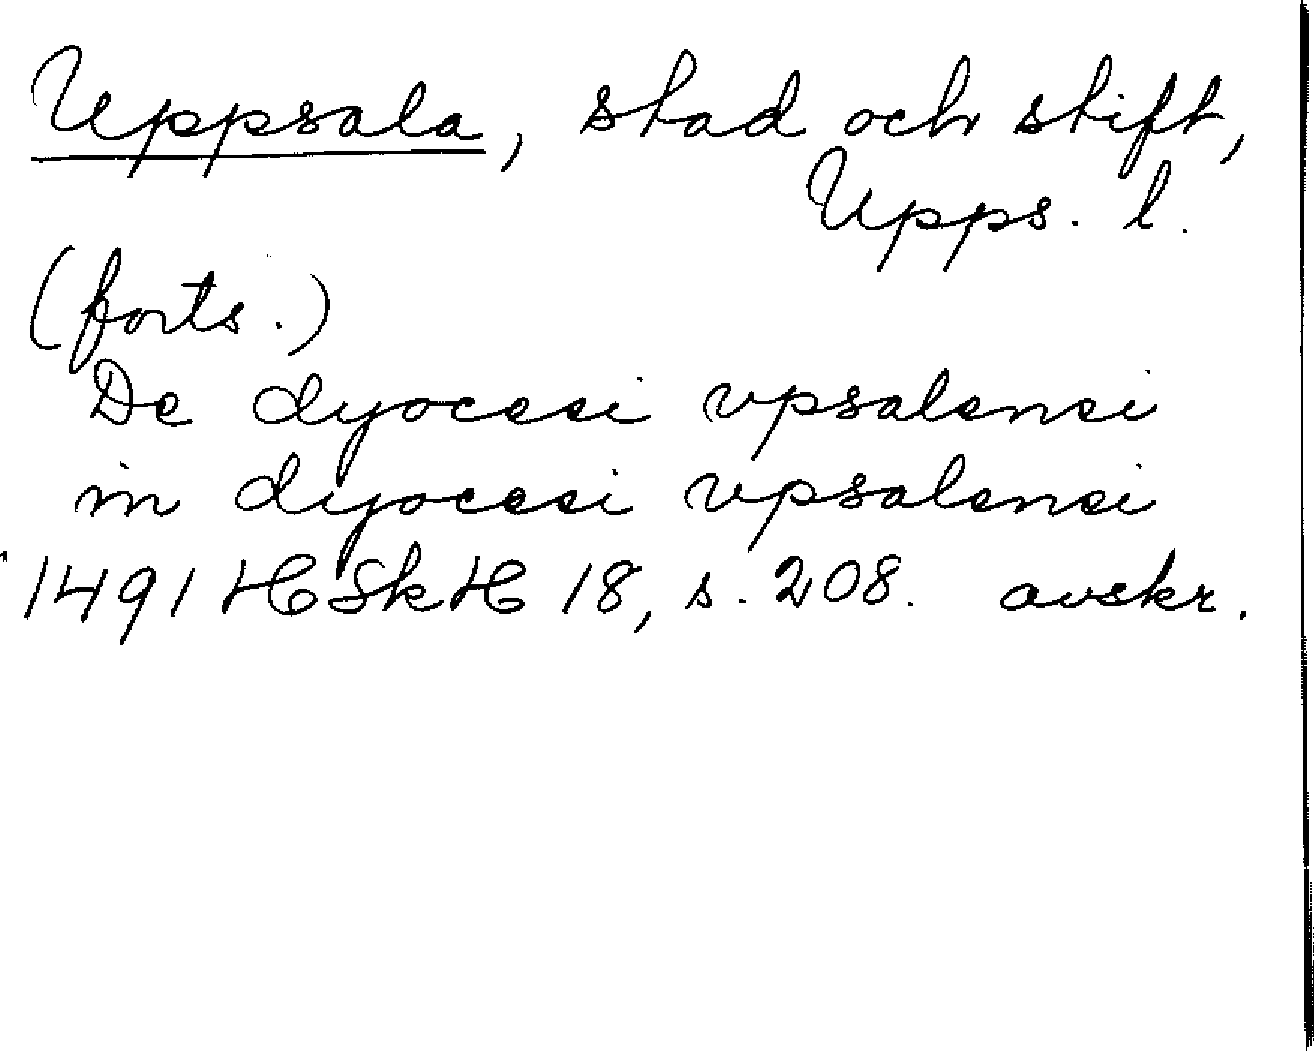 Uppsala, stad och stift,
Upps. l.
(forts.)
De dyocesi vpsalensi
in dyocesi vpsalensi
1491 HSkH 18, s. 208. avskr.